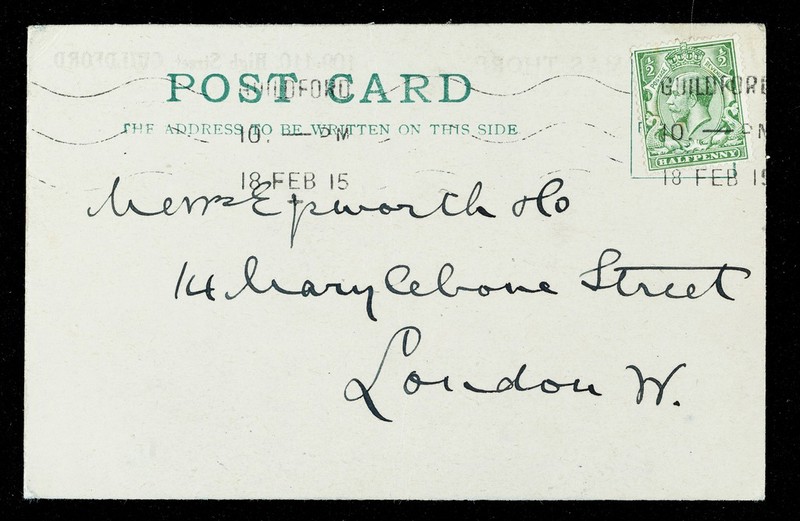 POST CARD
THE ADDRESS TO BE WRITTEN ON THIS SIDE
GUILDFORD
10. — PM
18 FEB 15
½ ½
POSTAGE REVENUE
HALFPENNY
GUILDFORD
10. — PM
18 FEB 15
Messrs Epworth & Co
14 Marylebone Street
London W.